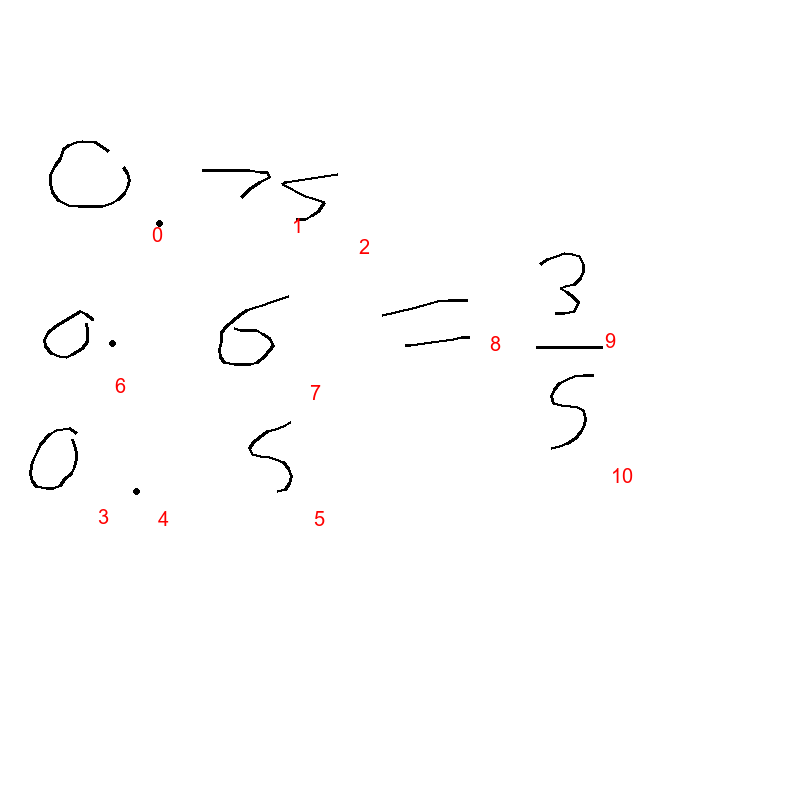 0.75
0
1
2
0.6 = 3/5
6
7
8
9
0.5
3
4
5
10